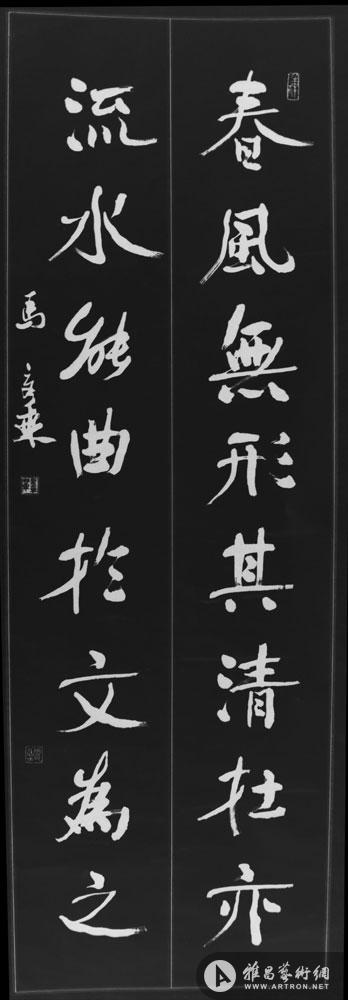 春風無形其清在亦
流水能曲於文為之
雅昌藝術網
WWW.ARTRON.NET